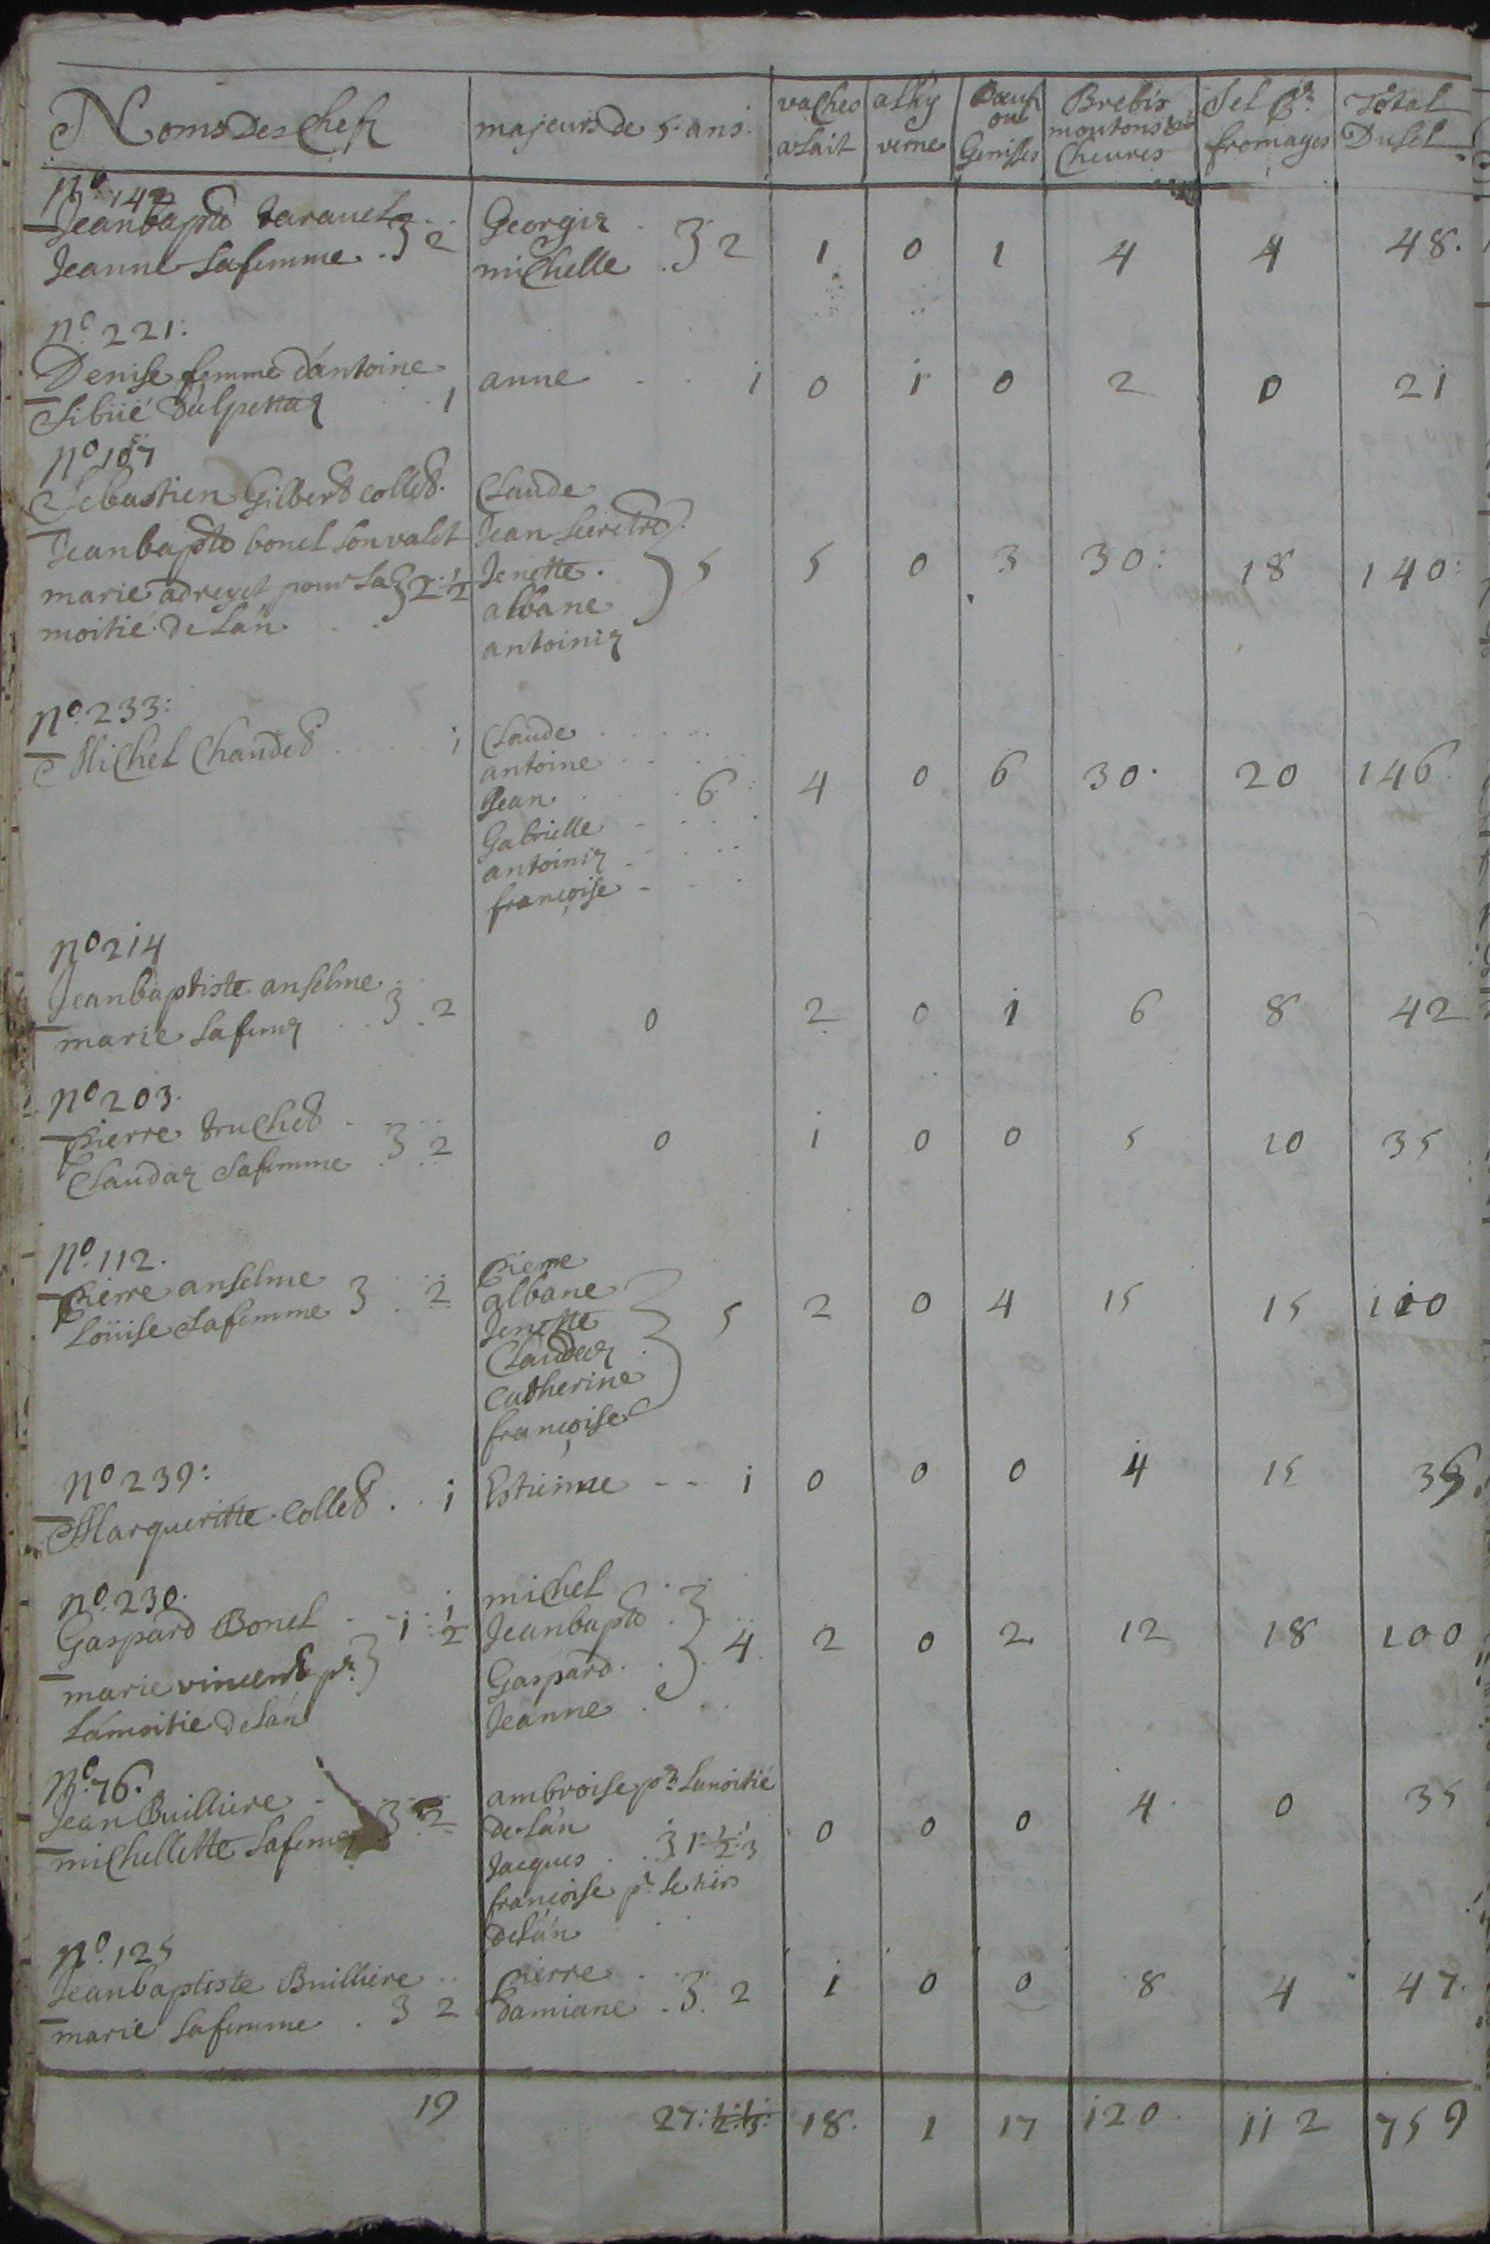 Noms Des Chefs | majeurs de 5 ans | vaches a lait | a lhy verne | Boeufs ou Genisses | Brebis moutons & Cheures | Sel pr fromages | Total Du Sel
No 142
Jeanbapte taravel
Jeanne sa femme . 3 2 | Georgia michelle . 3 2 | 1 | 0 | 1 | 4 | 4 | 48.
No 221:
Denise femme d'antoine
Sibüé 1 | anne 1 | 0 | 1 | 0 | 2 | 0 | 21
No 107
Sebastien Gilbert collet. | Claude
Jeanbapte bonel son valet | Jean
marie adreyet pour la 3 2 1/2 | Jenette. 5 | 5 | 0 | 3 | 30: | 18 | 140:
moitié de l'an | albane
antoinia
No 233:
Michel Chaudet 1 | Claude
antoine
Jean 6 | 4 | 0 | 6 | 30. | 20 | 146.
Gabrielle
antoinia
françoise
No 214
Jeanbaptiste anselme
marie sa femę 3 2 | 0 | 2 | 0 | 1 | 6 | 8 | 42
No 203.
Pierre truchet
Claudaz sa femme 3 2 | 0 | 1 | 0 | 0 | 5 | 10 | 35
No 112.
Pierre anselme | Pierre
Loüise sa femme 3 2 | albane
Jenette 5 | 2 | 0 | 4 | 15 | 15 | 110
Claudaz
Catherine
françoise
No 239:
Margueritte Collet . . 1 | Estienne - - 1 | 0 | 0 | 0 | 4 | 15 | 35.
No 230.
Gaspard Bonel - - 1 : 1/2 | michel
marie vincent pr | Jeanbapte
La moitie de l'an | Gaspard. 4. | 2 | 0 | 2 | 12 | 18 | 100
Jeanne
No 76.
Jean Builliere | ambroise pr la moitié
michellette sa femę 3 2 | de l'an
Jacques . . 3 1 : 1/2 : 1/3 | 0 | 0 | 0 | 4. | 0 | 35
françoise pr le tiers
de l'an
No 125
Jeanbaptiste Builliere | Pierre
marie sa femme . 3 2 | damiane . 3. 2 | 1 | 0 | 0 | 8 | 4 | 47.
19 | 27: 1/2 : 1/3: | 18. | 1 | 17 | 120. | 112 | 759